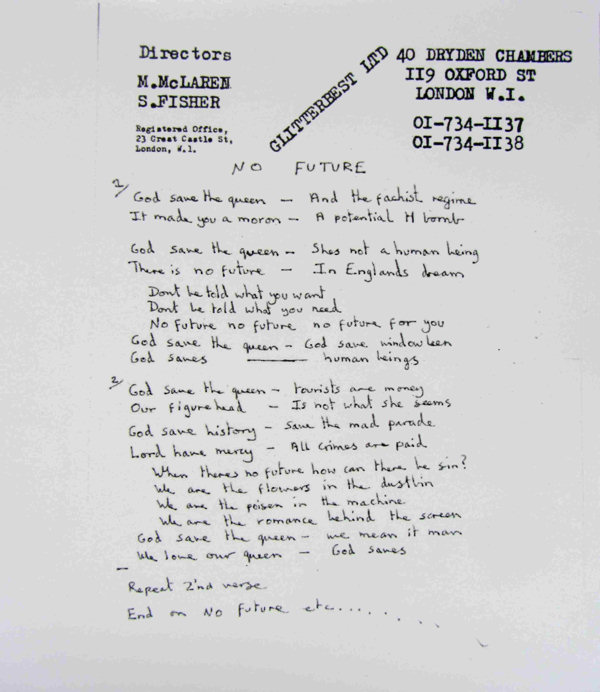 Directors
M.McLAREN
S.FISHER
Registered Office,
23 Great Castle St,
London, W.1.
GLITTERBEST LTD
40 DRYDEN CHAMBERS
119 OXFORD ST
LONDON W.I.
01-734-1137
01-734-1138
NO FUTURE
1/ God save the queen — And the fachist regime
It made you a moron — A potential H bomb
God save the queen — Shes not a human being
There is no future — In Englands dream
Dont be told what you want
Dont be told what you need
No future no future no future for you
God save the queen — God save windowleen
God saves ——— human beings
2/ God save the queen — tourists are money
Our figurehead — Is not what she seems
God save history — Save the mad parade
Lord have mercy — All crimes are paid
When theres no future how can there be sin?
We are the flowers in the dustbin
We are the poison in the machine
We are the romance behind the screen
God save the queen — we mean it man
We love our queen — God saves
Repeat 2'nd verse
End on No future etc........